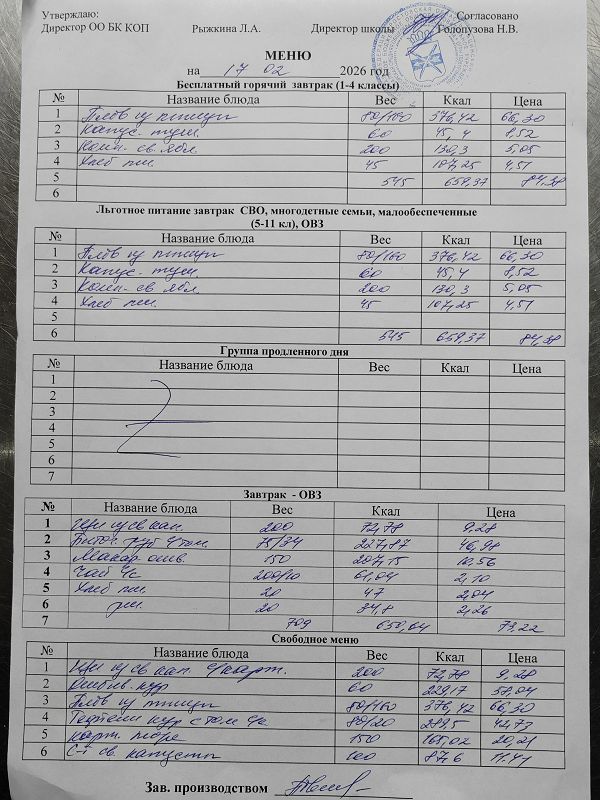 Утверждаю: Согласовано
Директор ОО БК КОП Рыжкина Л.А. Директор школы Голопузова Н.В.
МЕНЮ
на 17 02 2026 год
Бесплатный горячий завтрак (1-4 классы)
№ Название блюда Вес Ккал Цена
1 Плов из птицы 80/160 376,42 66,30
2 Капус. туш. 60 45,4 8,52
3 Комп. св. ябл. 200 130,3 5,05
4 Хлеб пш. 45 107,25 4,51
5 545 659,37 84,38
6
Льготное питание завтрак СВО, многодетные семьи, малообеспеченные
(5-11 кл), ОВЗ
№ Название блюда Вес Ккал Цена
1 Плов из птицы 80/160 376,42 66,30
2 Капус. туш. 60 45,4 8,52
3 Комп. св ябл. 200 130,3 5,05
4 Хлеб пш. 45 107,25 4,51
5
6 545 659,37 84,38
Группа продленного дня
№ Название блюда Вес Ккал Цена
1
2
3
4
5
6
7
Завтрак - ОВЗ
№ Название блюда Вес Ккал Цена
1 Щи из св кап. 200 72,78 9,28
2 Биточ. руб с том. 75/34 227,87 46,98
3 Макар отв. 150 207,15 10,56
4 Чай с/с 200/10 61,04 2,10
5 Хлеб пш. 20 47 2,04
6 рж. 20 34,8 2,26
7 709 650,64 73,22
Свободное меню
№ Название блюда Вес Ккал Цена
1 Щи из св кап. с/карт. 200 72,78 9,28
2 кур 60 229,17 58,04
3 Плов из птицы 80/160 376,42 66,30
4 Тефтели кур с том 80/20 289,5 42,73
5 карт. пюре 150 165,02 20,21
6 С-т св. капусты 100 87,6 11,41
Зав. производством